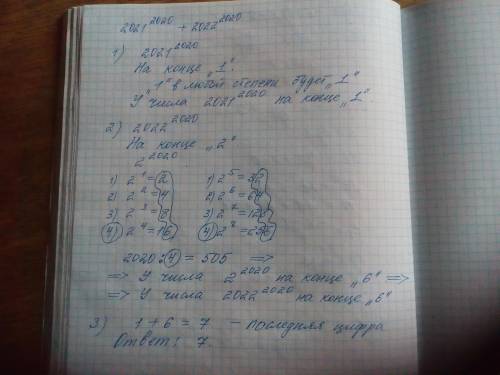 2021²⁰²⁰ + 2022²⁰²⁰
1) 2021²⁰²⁰
На конце „1".
„1" в любой степени будет „1"
У числа 2021²⁰²⁰ на конце „1".
2) 2022²⁰²⁰
На конце „2"
2²⁰²⁰
1) 2¹ = 2 1) 2⁵ = 32
2) 2² = 4 2) 2⁶ = 64
3) 2³ = 8 3) 2⁷ = 128
4) 2⁴ = 16 4) 2⁸ = 256
2020 : 4 = 505 =>
=> У числа 2²⁰²⁰ на конце „6" =>
=> У числа 2022²⁰²⁰ на конце „6"
3) 1 + 6 = 7 – последняя цифра
Ответ: 7.